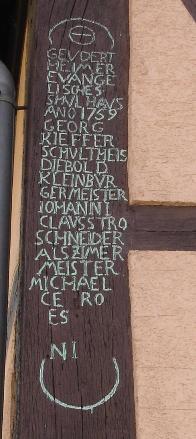 GEUDERT
HEIMER
EVANGE
LISCHES
SHULHAUS
ANO 1759
GEORG
KIEFFER
SCHULTHEIS
DIEBOLD
KLEINBUR
GERMEISTER
IOMANNI
CLAUSS TRO
SCHNEIDER
ALS ZIMER
MEISTER
MICHAEL
CE RO
ES
NI